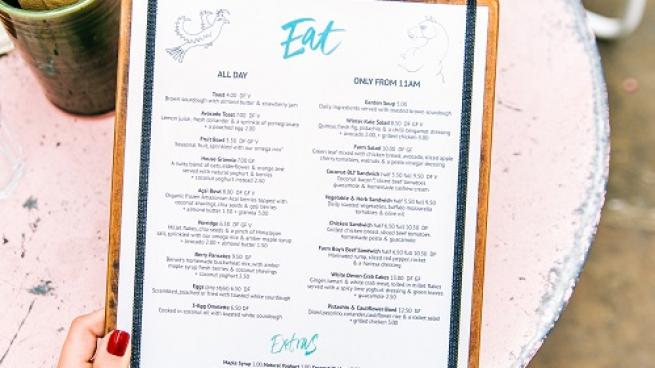 Eat
ALL DAY
Toast 4.00 DF V
Brown sourdough with almond butter & strawberry jam
Avocado Toast 7.00 DF V
Lemon juice, fresh coriander & a sprinkle of pomegranate
+ a poached egg 2.00
Fruit Bowl 5.50 DF V
Seasonal fruit, sprinkled with our omega mix
House Granola 7.00 DF
served with natural yoghurt & berries
+ coconut yoghurt instead 2.50
Açai Bowl 8.00 DF V
Organic frozen Amazonian Acai berries topped with
coconut shavings, chia seeds & goji berries
+ almond butter 1.50 + granola 3.00
Porridge 6.50 DF V
Millet flakes, chia seeds & a pinch of Himalayan
salt, sprinkled with our omega mix & amber maple syrup
+ Avocado 2.00 + almond butter 1.50
Berry Pancakes 9.50 GF
homemade buckwheat mix, with amber
maple syrup fresh berries & coconut shavings
+ Coconut yoghurt 2.50
Eggs (any style) 6.50 DF
Scrambled, poached or fried with toasted white sourdough
3-Egg Omelette 6.50 DF
Cooked in coconut oil with toasted white sourdough
ONLY FROM 11AM
Garden Soup 5.00
Daily ingredients served with toasted brown sourdough
Winter Kale Salad 8.50 DF GF V
Quinoa, fresh fig, pistachio & a chilli bergamot dressing
+ avocado 2.00, + grilled chicken 3.00
Farm Salad 10.00 DF GF
Green leaf mixed with chicken breast, avocado, sliced apple
cherry tomatoes, walnuts & a pesto vinegar dressing
Coconut BLT Sandwich half 5.50 full 9.50 DF V
Coconut 'bacon', sliced beef tomatoes
guacamole & homemade cashew cream
Vegetable & Herb Sandwich half 5.50 full 9.50 V
Daily roasted vegetables, buffalo mozzarella
tomatoes & olive oil
Chicken Sandwich half 6.50 full 10.50 DF
Grilled chicken breast, sliced beef tomatoes
homemade pesto & guacamole
Farm Boy's Beef Sandwich half 6.50 full 10.50 DF
Marinated rump, sliced red pepper, rocket
White Devon Crab Cakes 13.00 DF GF
Ginger, lemon & white crab meat, rolled in millet flakes
served with a spicy lime yoghurt dressing & green leaves
+ guacamole 2.50
Pistachio & Cauliflower Bowl 12.50 DF
+ grilled chicken 3.00
Extras
Maple Syrup 1.00 Natural Yoghurt 1.00